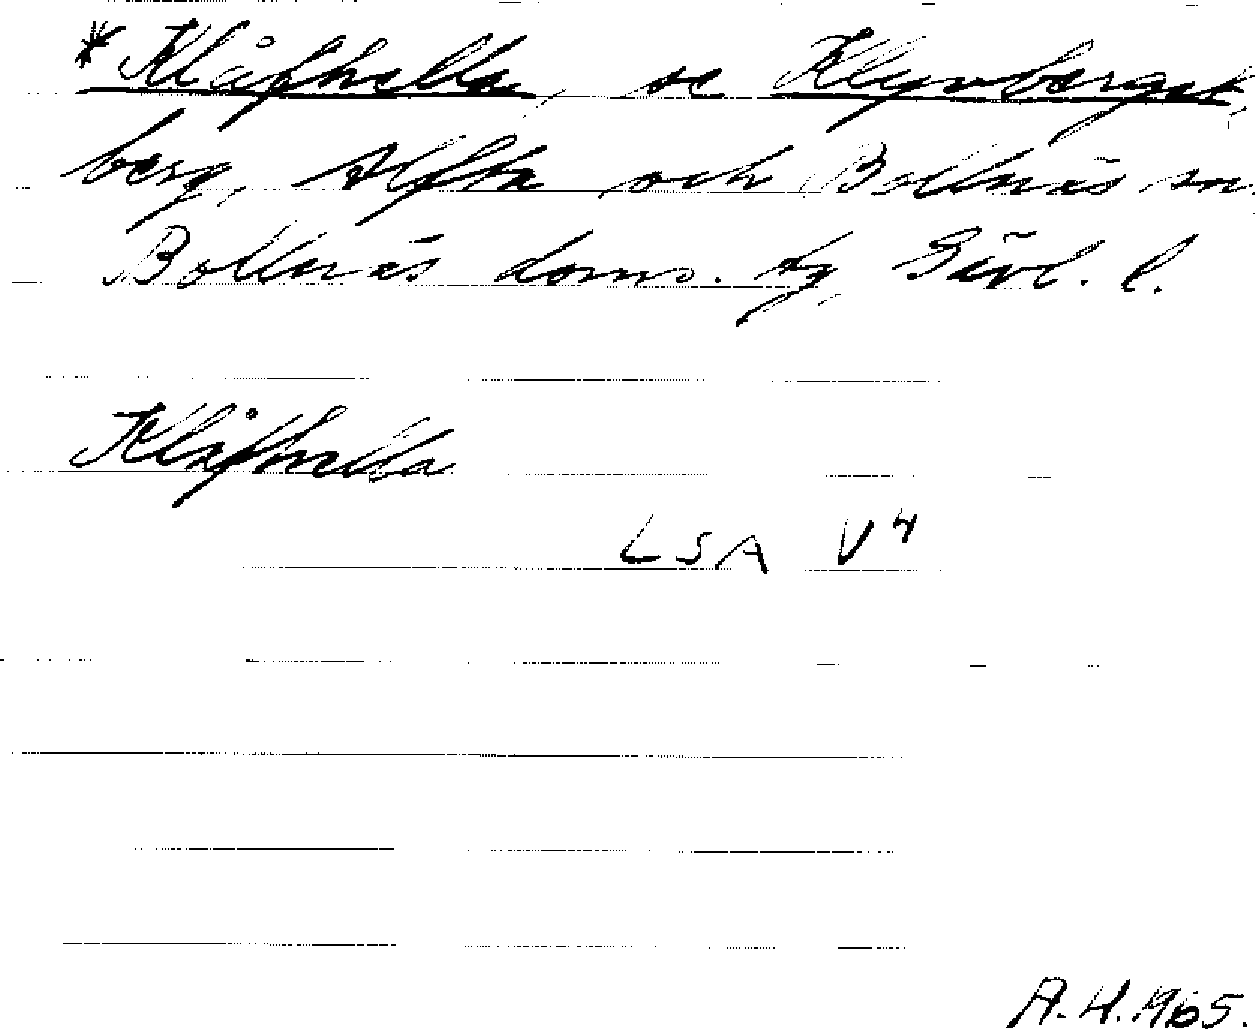 *Klåfhella, se Klyvberget,
berg, Alfta och Bollnäs sn.
Bollnäs doms. tg, Gävl. l.
Klåfhella
LSA V4
A.H. 1965.